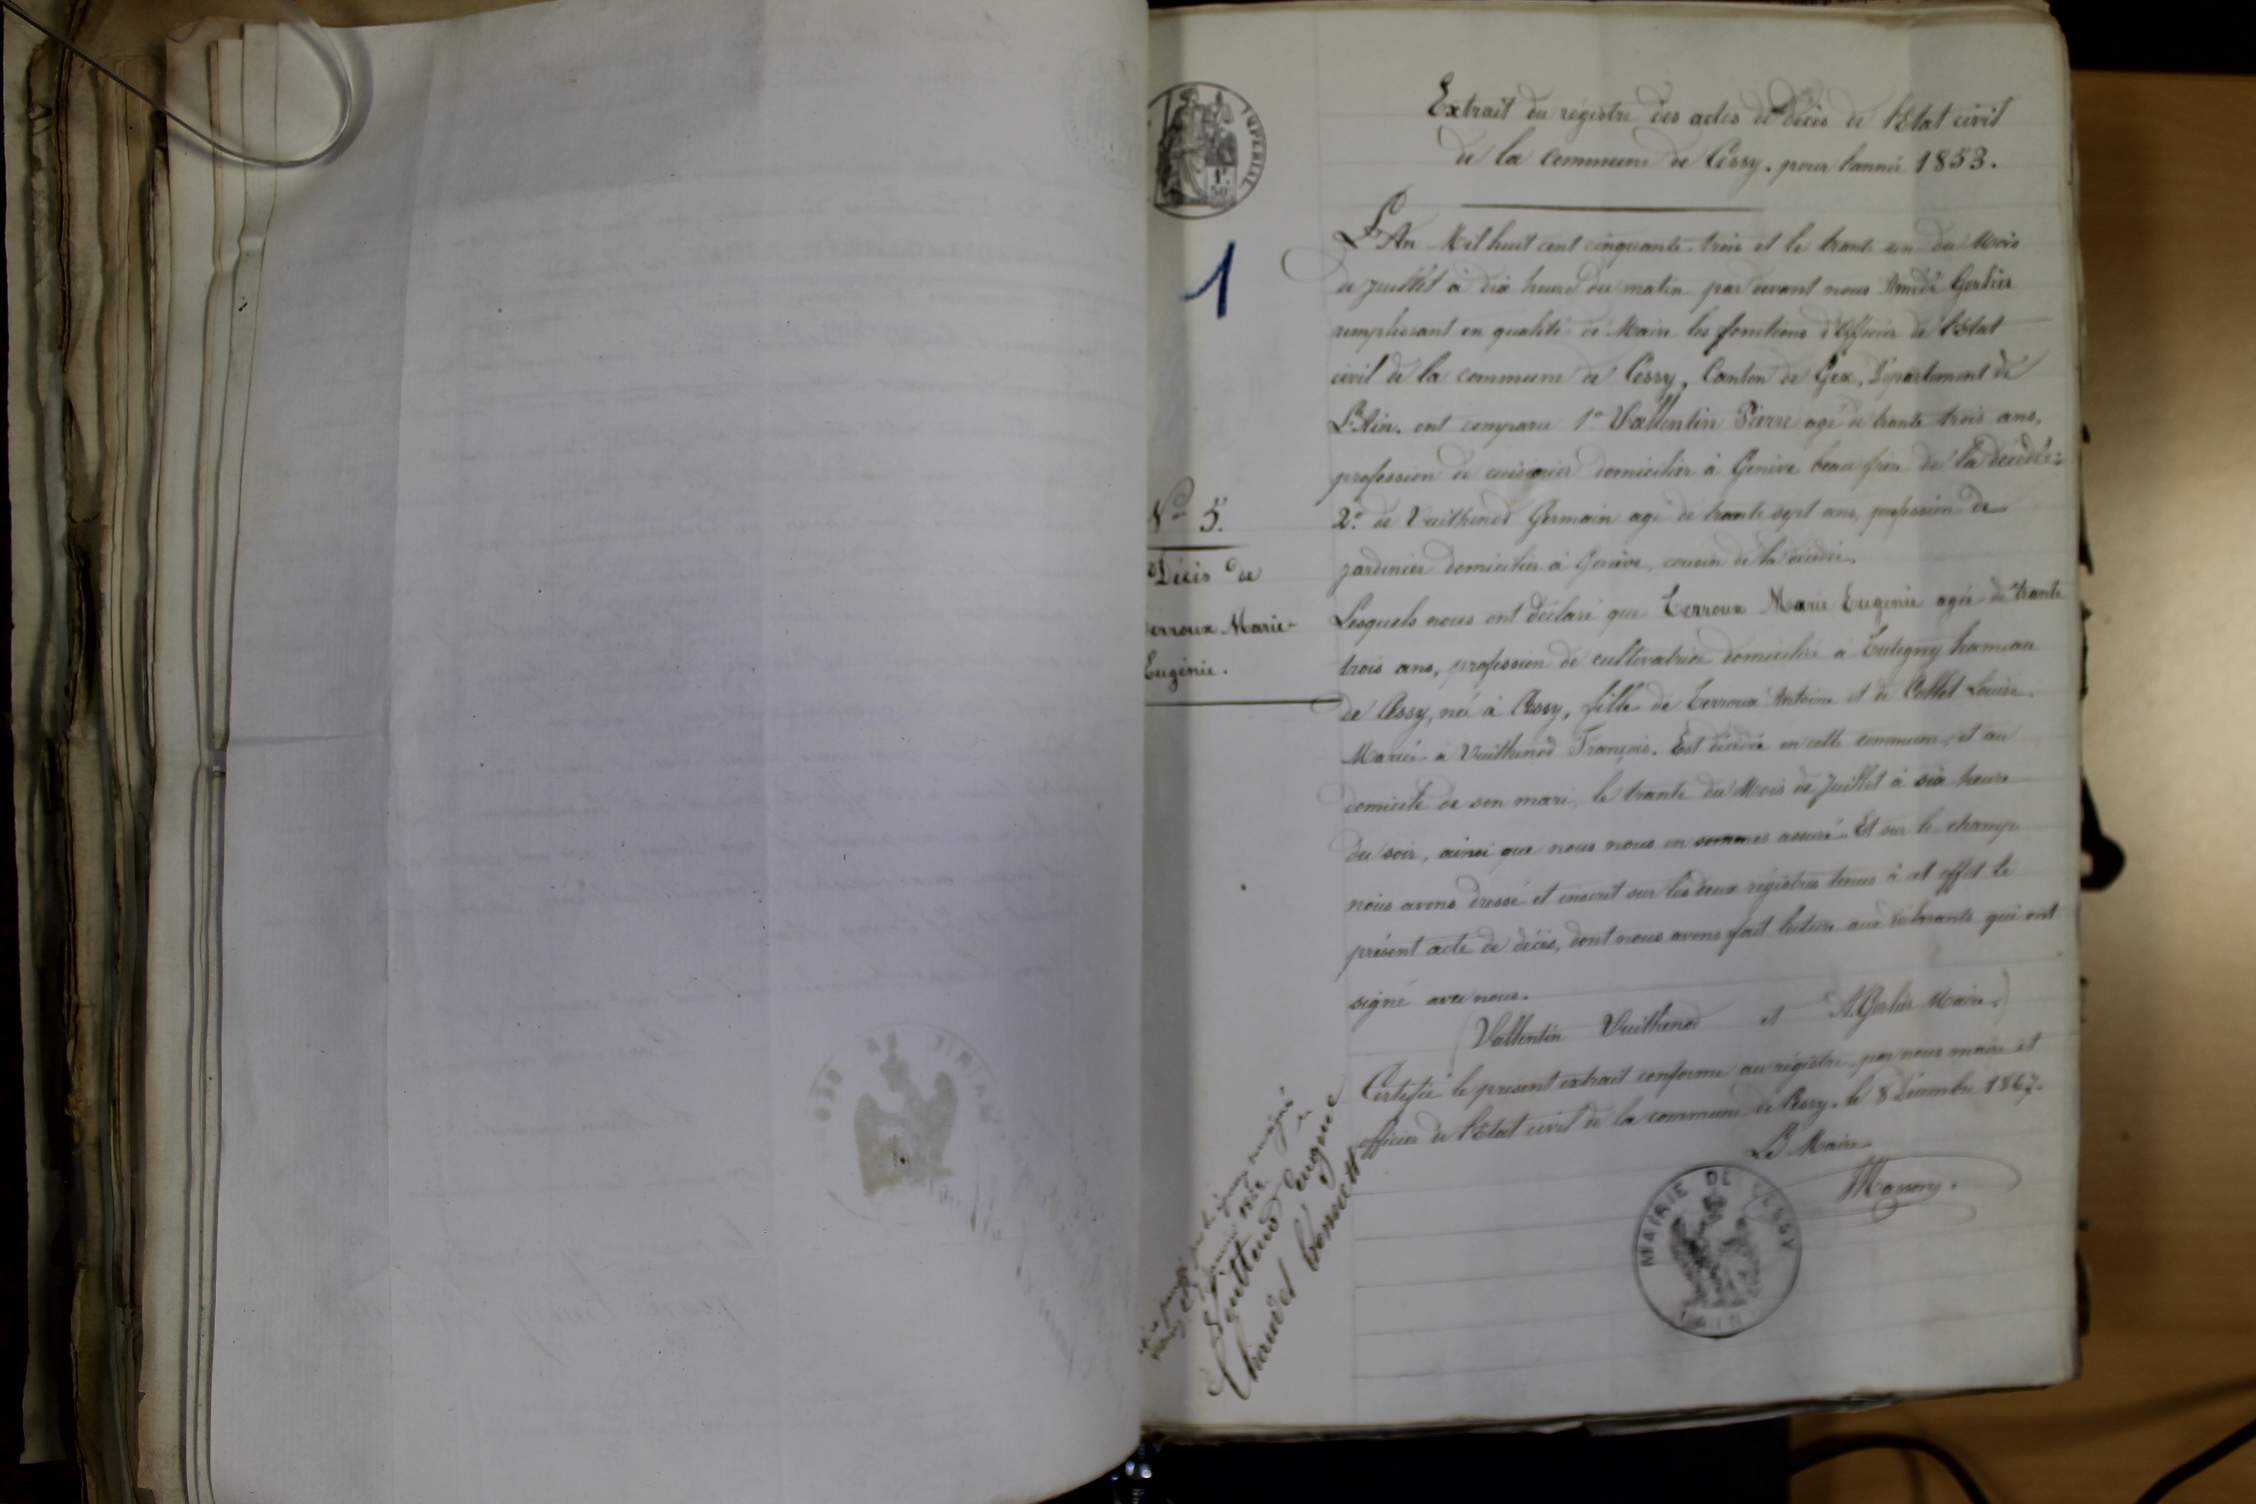 Extrait du régistre des actes de décès de l'Etat civil
de la commune de Cessy. pour l'année 1853.
IMPERIAL
1f
50
1
L'An Mil huit cent cinquante-trois et le trante un du Mois
de Juillet à dix heures du matin par devant nous Amédé Gerlier
remplissant en qualité de Maire les fonctions d'Officier de l'Etat
civil de la commune de Cessy, Canton de Gex, Département de
L'Ain. ont comparu 1° Vallentin Pierre agé de trante trois ans,
profession de cuisinier domicilier à Genève beau frère de la décédée:
N° 5.
2° de Vuithenod Germain agé de trante sept ans, profession de
jardinier domicilier à Genève, cousin de la décédée.
Décès de
erroux Marie
Eugénie.
Lesquels nous ont déclaré que Terroux Marie Eugénie agée de trante
trois ans, profession de cultivatrice domiciliée à Tutigny hameau
de Cessy, né à Cessy, fille de Terroux Antoine et de Collet Louise.
Mariée à Vuithenod François. Est décédée en cette commune, et au
domicile de son mari, le trante du Mois de Juillet à six heures
du soir, ainsi que nous nous en sommes assuré. Et sur le champ
nous avons dressé et inscrit sur les deux régistres tenus à cet effet le
présent acte de décès, dont nous avons fait lecture aux déclarants qui ont
signé avec nous.
(Vallentin Vuithenod et A. Gerlier Maire.)
Certifié le present extrait conforme au régistre, par nous maire et
officier de l'Etat civil de la commune de Cessy. le 8 Décembre 1867.
Le Maire
MAIRIE DE CESSY
(AIN)
Eugène
Chaudet